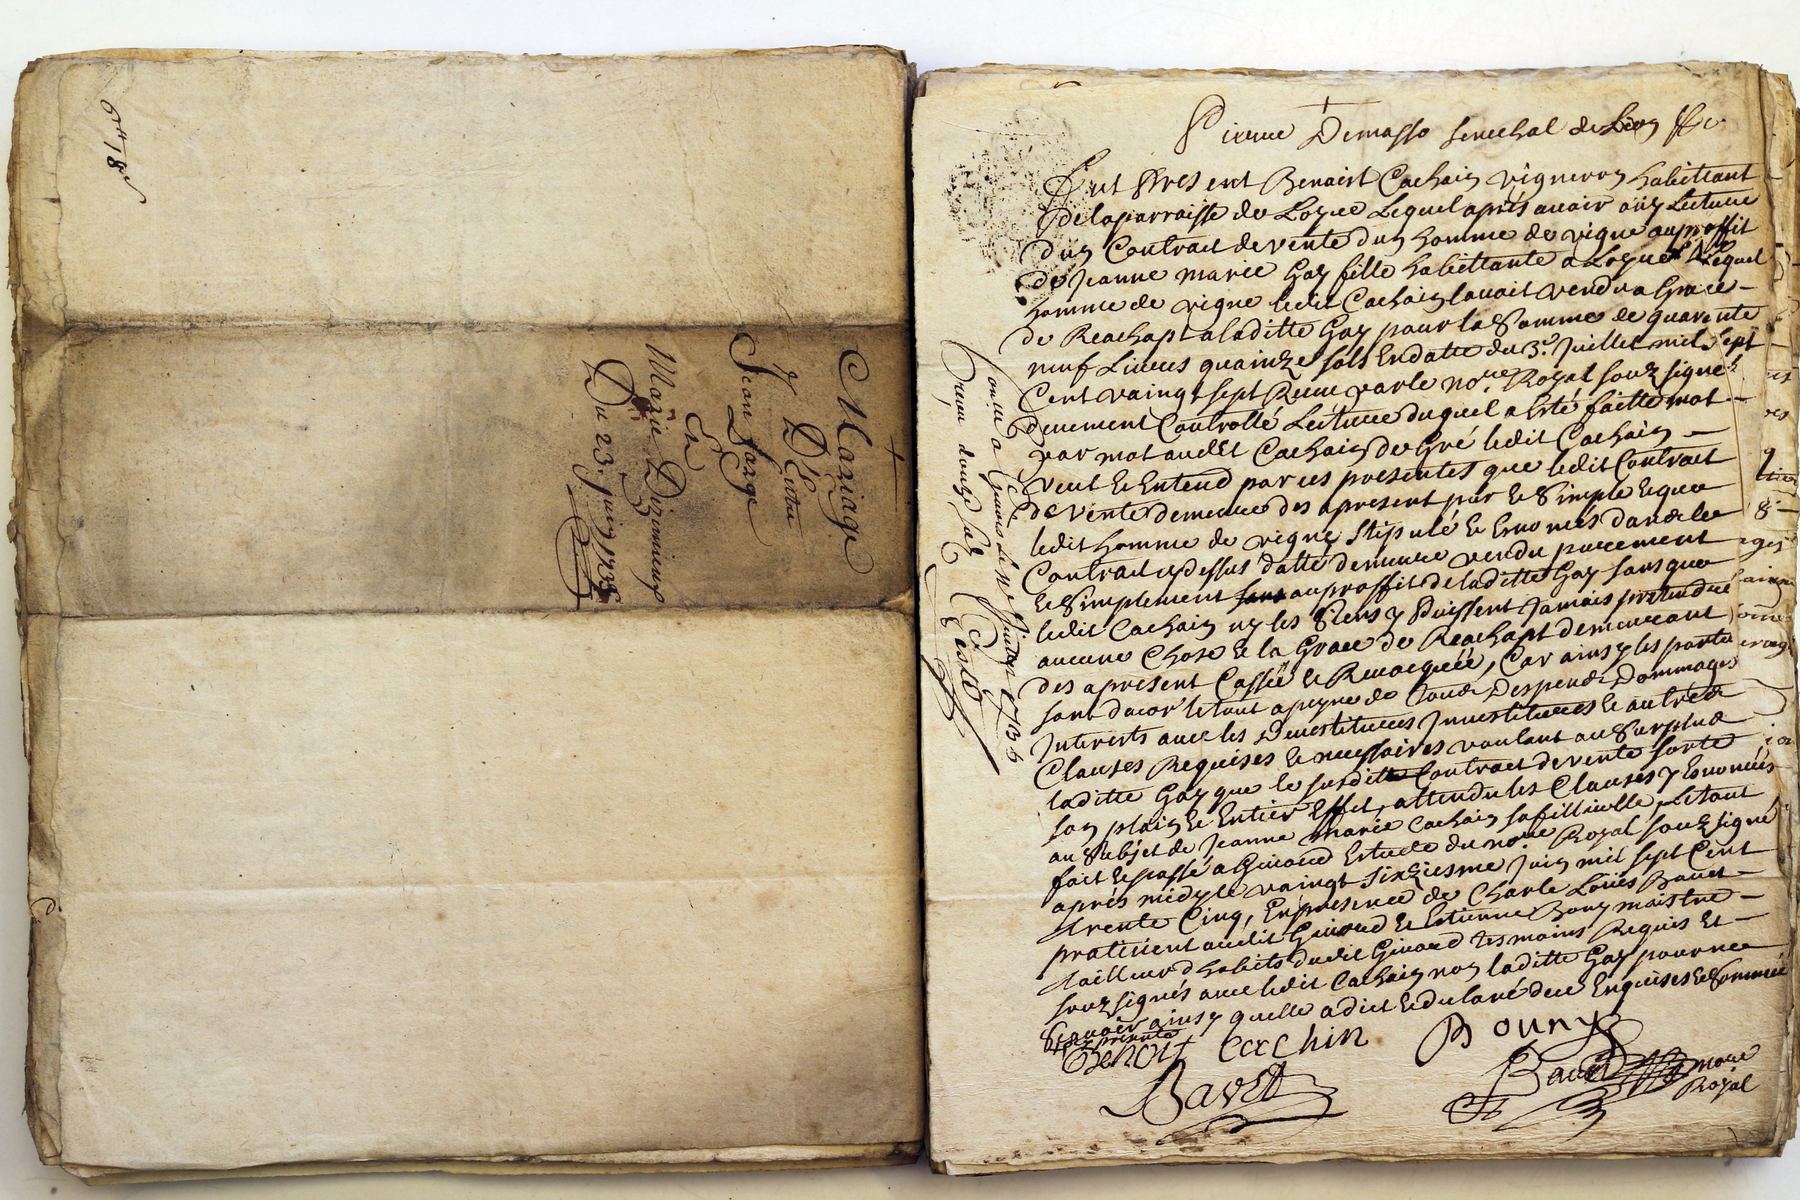 6tt 18s
Mariage
D'Entre
Jean Farge
Et
Marie Dizimieux
Du 23. juin 1735
Pierre Demasso senechal de Lion &c
fut Present Benoist Cachain vigneron habittant
de laparroisse de Lozue Lequel aprés auoir oüy Lecture
dun Contract de vente dun homme de vigne auproffit
de Jeanne marie Gay fille habittante a Lozue Lequel
homme de vigne ledit Cachain lauoit vendu a Grace
de Reachapt aladitte Gay pour la Somme de quarante
neuf Liures quainze sols En datte du 3e. Juillet mil sept
Cent vaingt sept Receu par le nore. Royal souz signé
deuement Controllé Lecture duquel a Esté faitte mot
par mot audit Cachain de Gré ledit Cachain
veut & Entend par ces presentes que ledit Contract
de vente demeure des apresent pur & Simple & que
ledit homme de vigne stipulé & Enoncés dans le
Contract cy dessus datté demeure vendu purement
& Simplement auproffit de laditte Gay sans que
ledit Cachain ny les Siens y Puissent Jamais pretendre
aucune Chose & la Grace de Reachapt demeurant
des apresent Cassée & Reuocquée, Car ainsy les parties
sont dacor le tout apeyne de Tous Despens Dommages
Interests auec les Deuestitures Inuestitures & autres
Clauses Requises & necessaires voulant au Surplus
laditte Gay que le susdit Contract de vente sorte
son plain & Entier Effet, attendu les Clauses y Enoncées
au Subjet de Jeanne Marie Cachain safillieulle, Le tout
fait & passé a Giuord Estude du nore. Royal souz signé
aprés midy le vaingt sixiesme Juin mil sept Cent
trente Cinq, En presence de Charle Loüis Bauet
praticient audit Giuord & Estienne Bouny maistre
tailleur dhabits dudit Giuord tesmoins Requis Et
souz signés auec ledit Cachain non laditte Gay pour ne
Scauoir ainsy quelle a dict & declaré de ce Enquises & Sommée
Benoit Cachin
Bouny
Bavet
nore
Royal
Receu douze sols